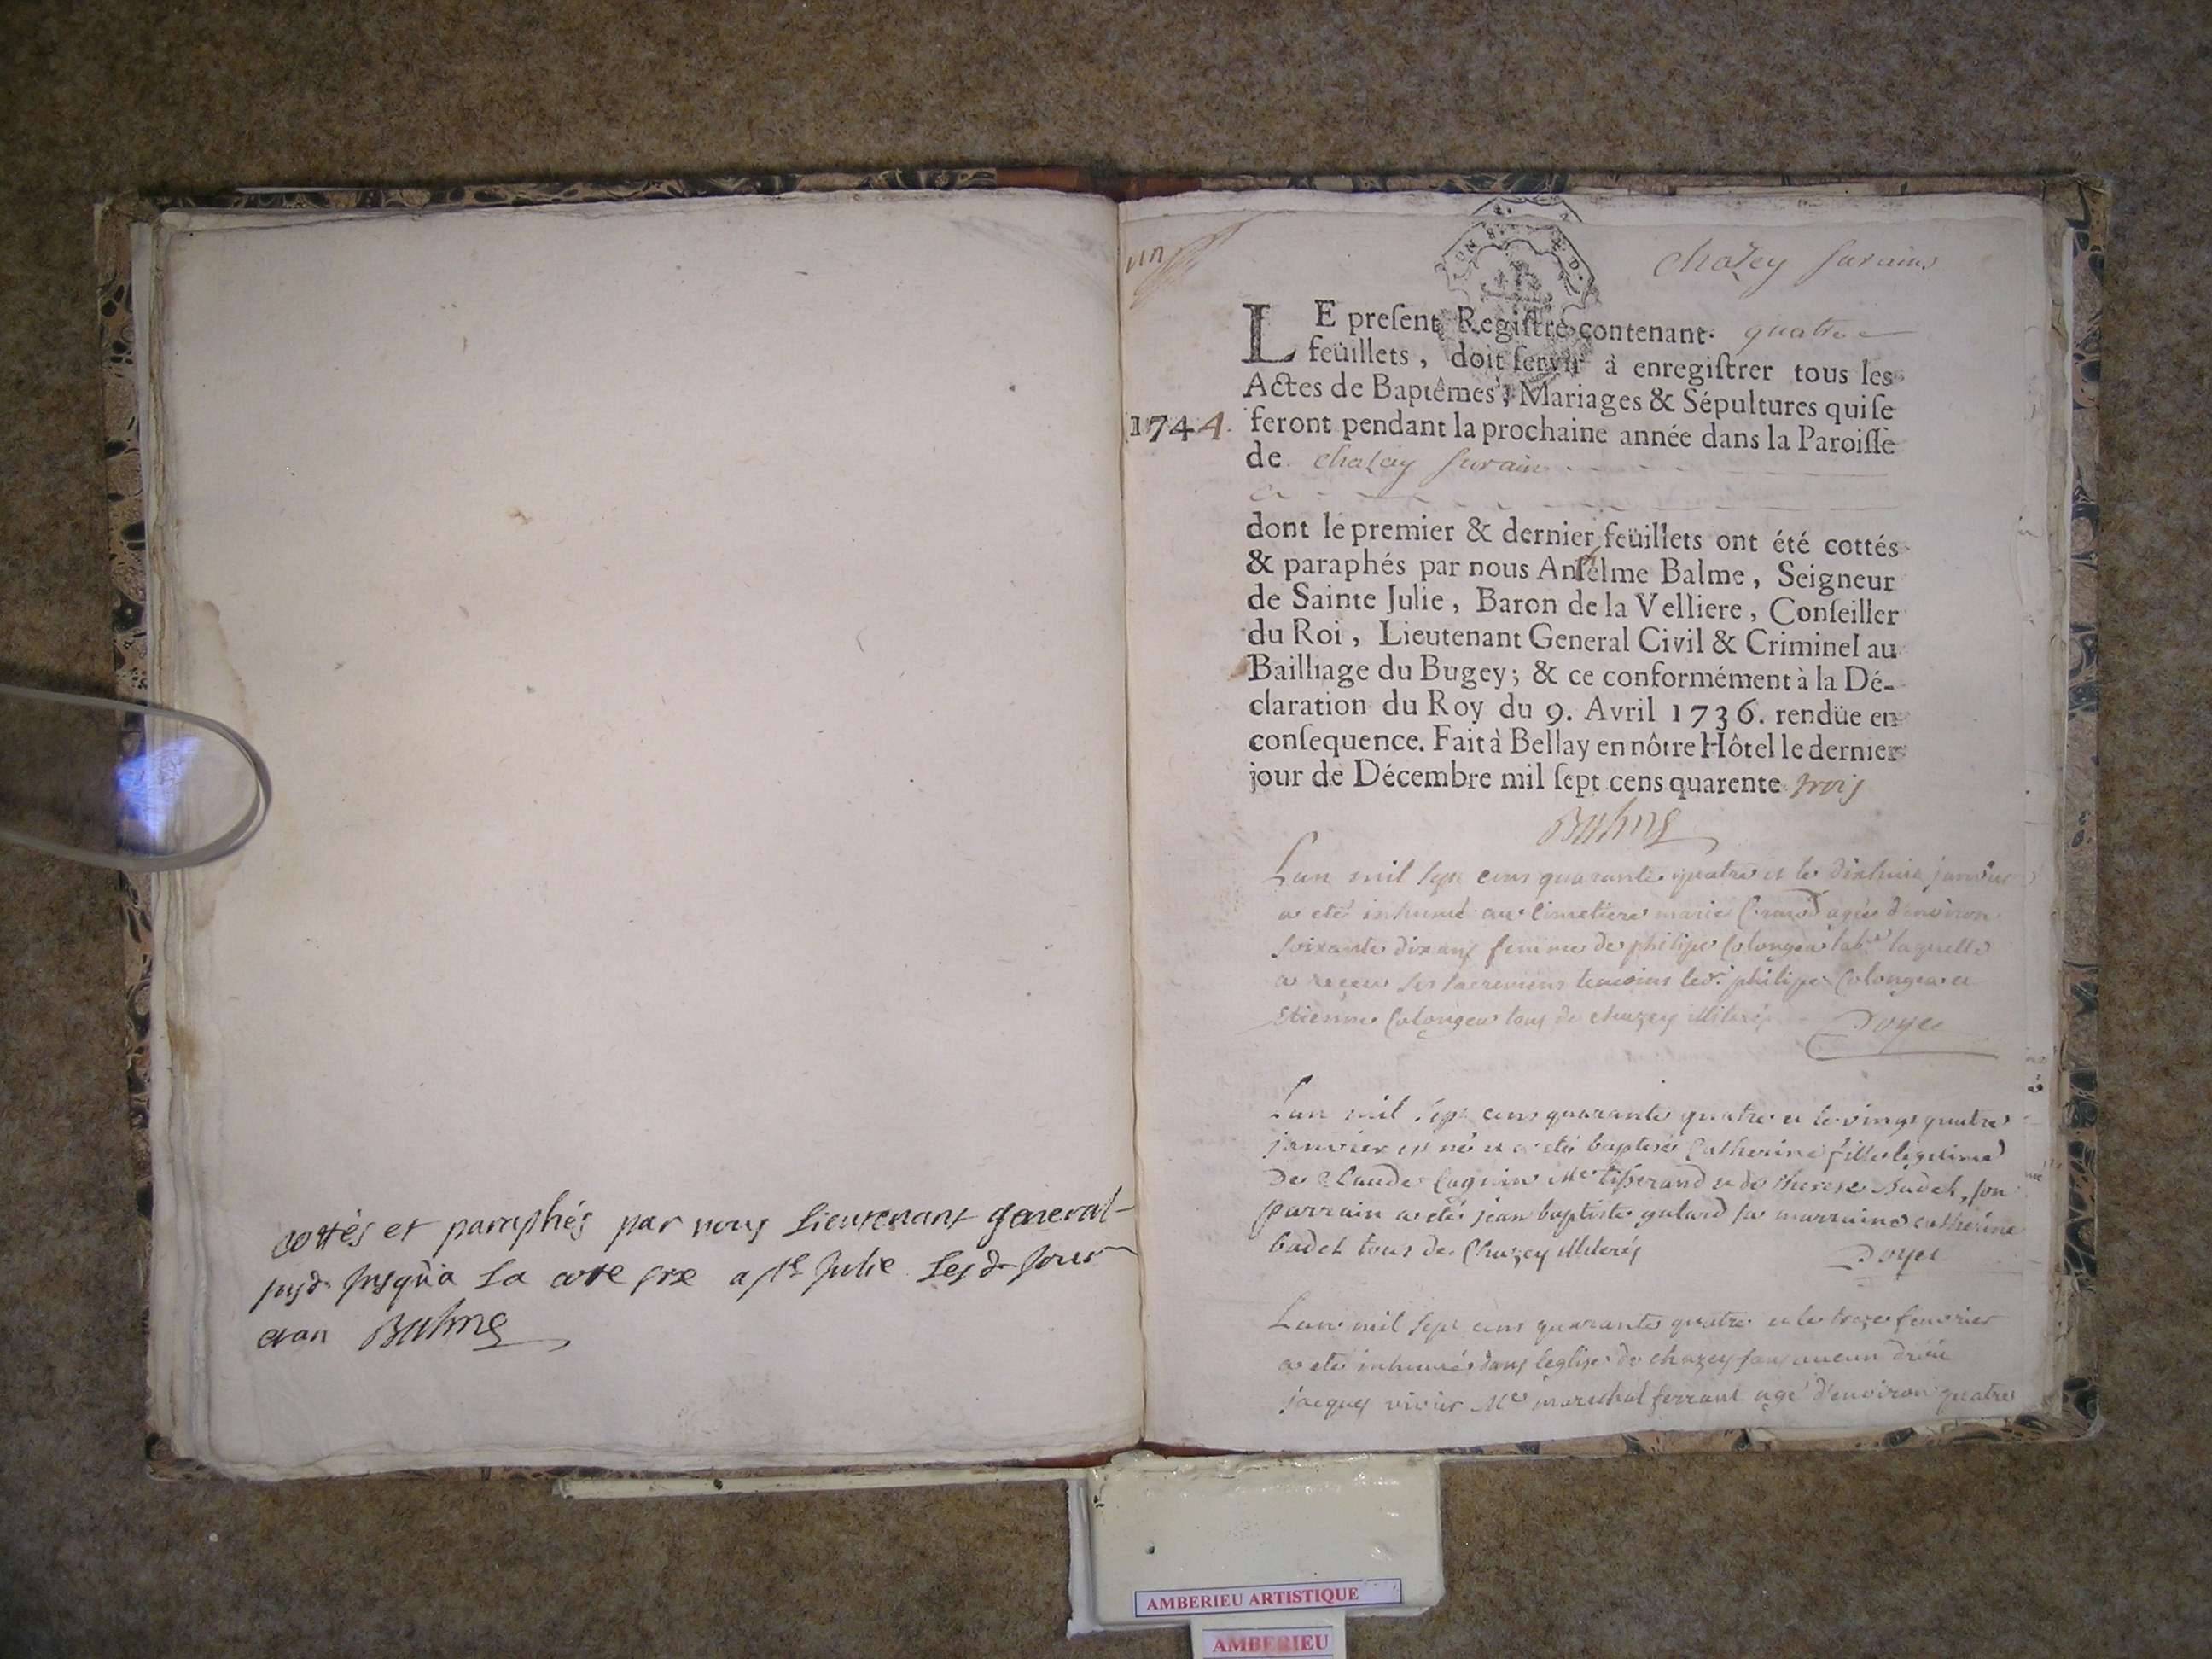 cottés et paraphés par nous Lieutenant general
susd. Jusqu'a la cote sre a ste Julie Les d. Jour
et an Balme
un
chazey surains
LE preſent Regiſtre contenant quatre
feüillets, doit ſervir à enregiſtrer tous les
Actes de Baptêmes, Mariages & Sépultures qui ſe
1744. feront pendant la prochaine année dans la Paroiſſe
de chazay surain
dont le premier & dernier feüillets ont été cottés
& paraphés par nous Anſelme Balme, Seigneur
de Sainte Julie, Baron de la Velliere, Conſeiller
du Roi, Lieutenant General Civil & Criminel au
Bailliage du Bugey; & ce conformément à la Dé-
claration du Roy du 9. Avril 1736. rendüe en
conſequence. Fait à Bellay en nôtre Hôtel le dernier
jour de Décembre mil ſept cens quarente trois
Balme
Lan mil sept cens quarante quatre et le dixhuit janvier
a eté inhumé au cimetiere marie agée d'environ
soixante dix ans femme de philipe Colongea lab.r laquelle
a reçeu ses sacremens temoins led. philipe Colongea et
Etienne Colongea tous de chazey illiterés Doyet
Lan mil sept cens quarante quatre et le vingt quatre
janvier est né et a eté baptisé Catherine fille legitime
De Claude Cagnin Me tisserand et de therese Badet, son
parrain a eté jean baptiste galard sa marraine catherine
badet tous de Chazey illiterés Doyet
Lan mil sept cens quarante quatre et le treze fevrier
a eté inhumé dans leglise de chazey sans aucun droit
jacques vivier Me marechal ferrant agé d'environ quatre
AMBERIEU ARTISTIQUE
AMBERIEU